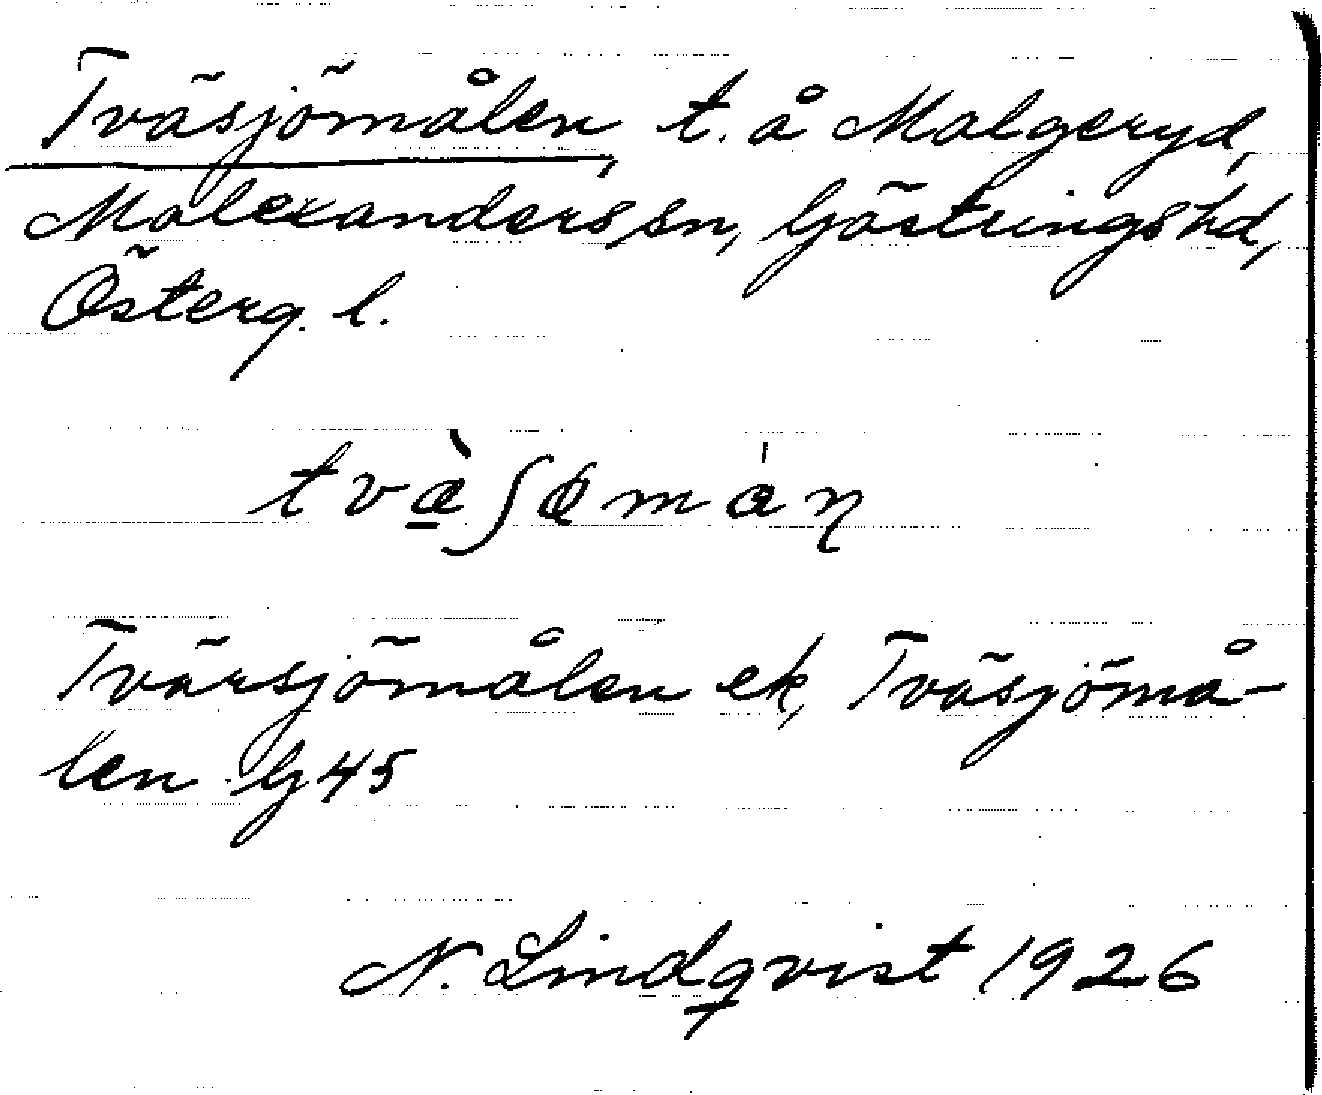 Tväsjömålen, t. å Malgeryd,
Malexanders sn, Göstringshd,
Österg. l.
tvæ̀ʃømån
Tvärsjömålen ek, Tväsjömå-
len G 45
N. Lindqvist 1926